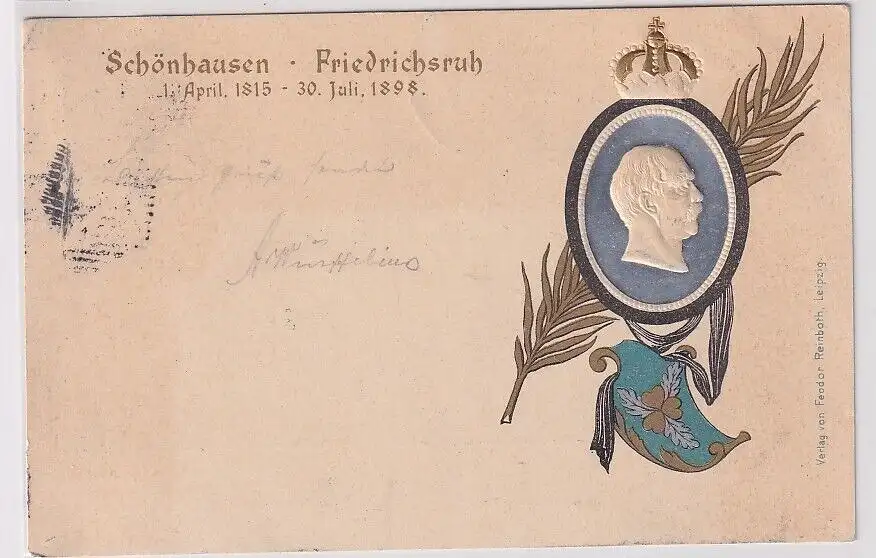 Schönhausen · Friedrichsruh
1. April, 1815 - 30. Juli, 1898.
gruß sendet
Verlag von Feodor Reinboth, Leipzig.